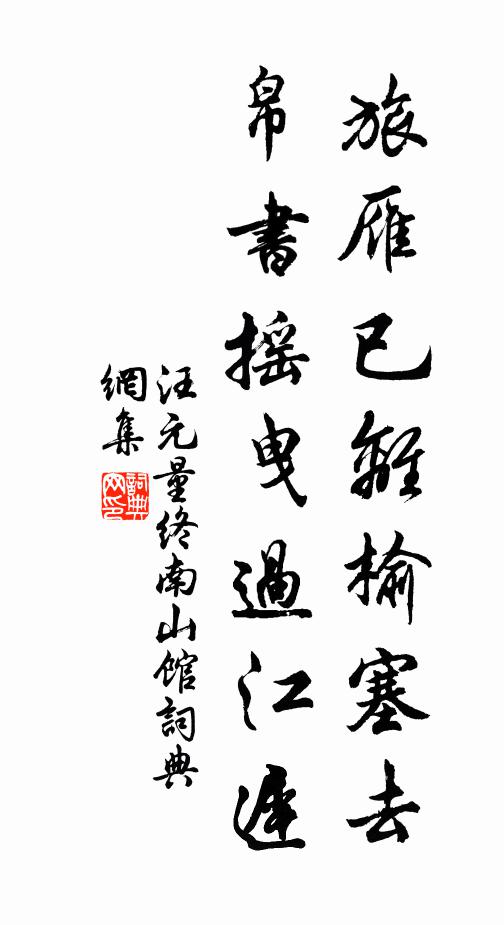 旅雁已離榆塞去
帛書摇曳過江遲
汪元量終南山館詞典
網集
詞典
网印